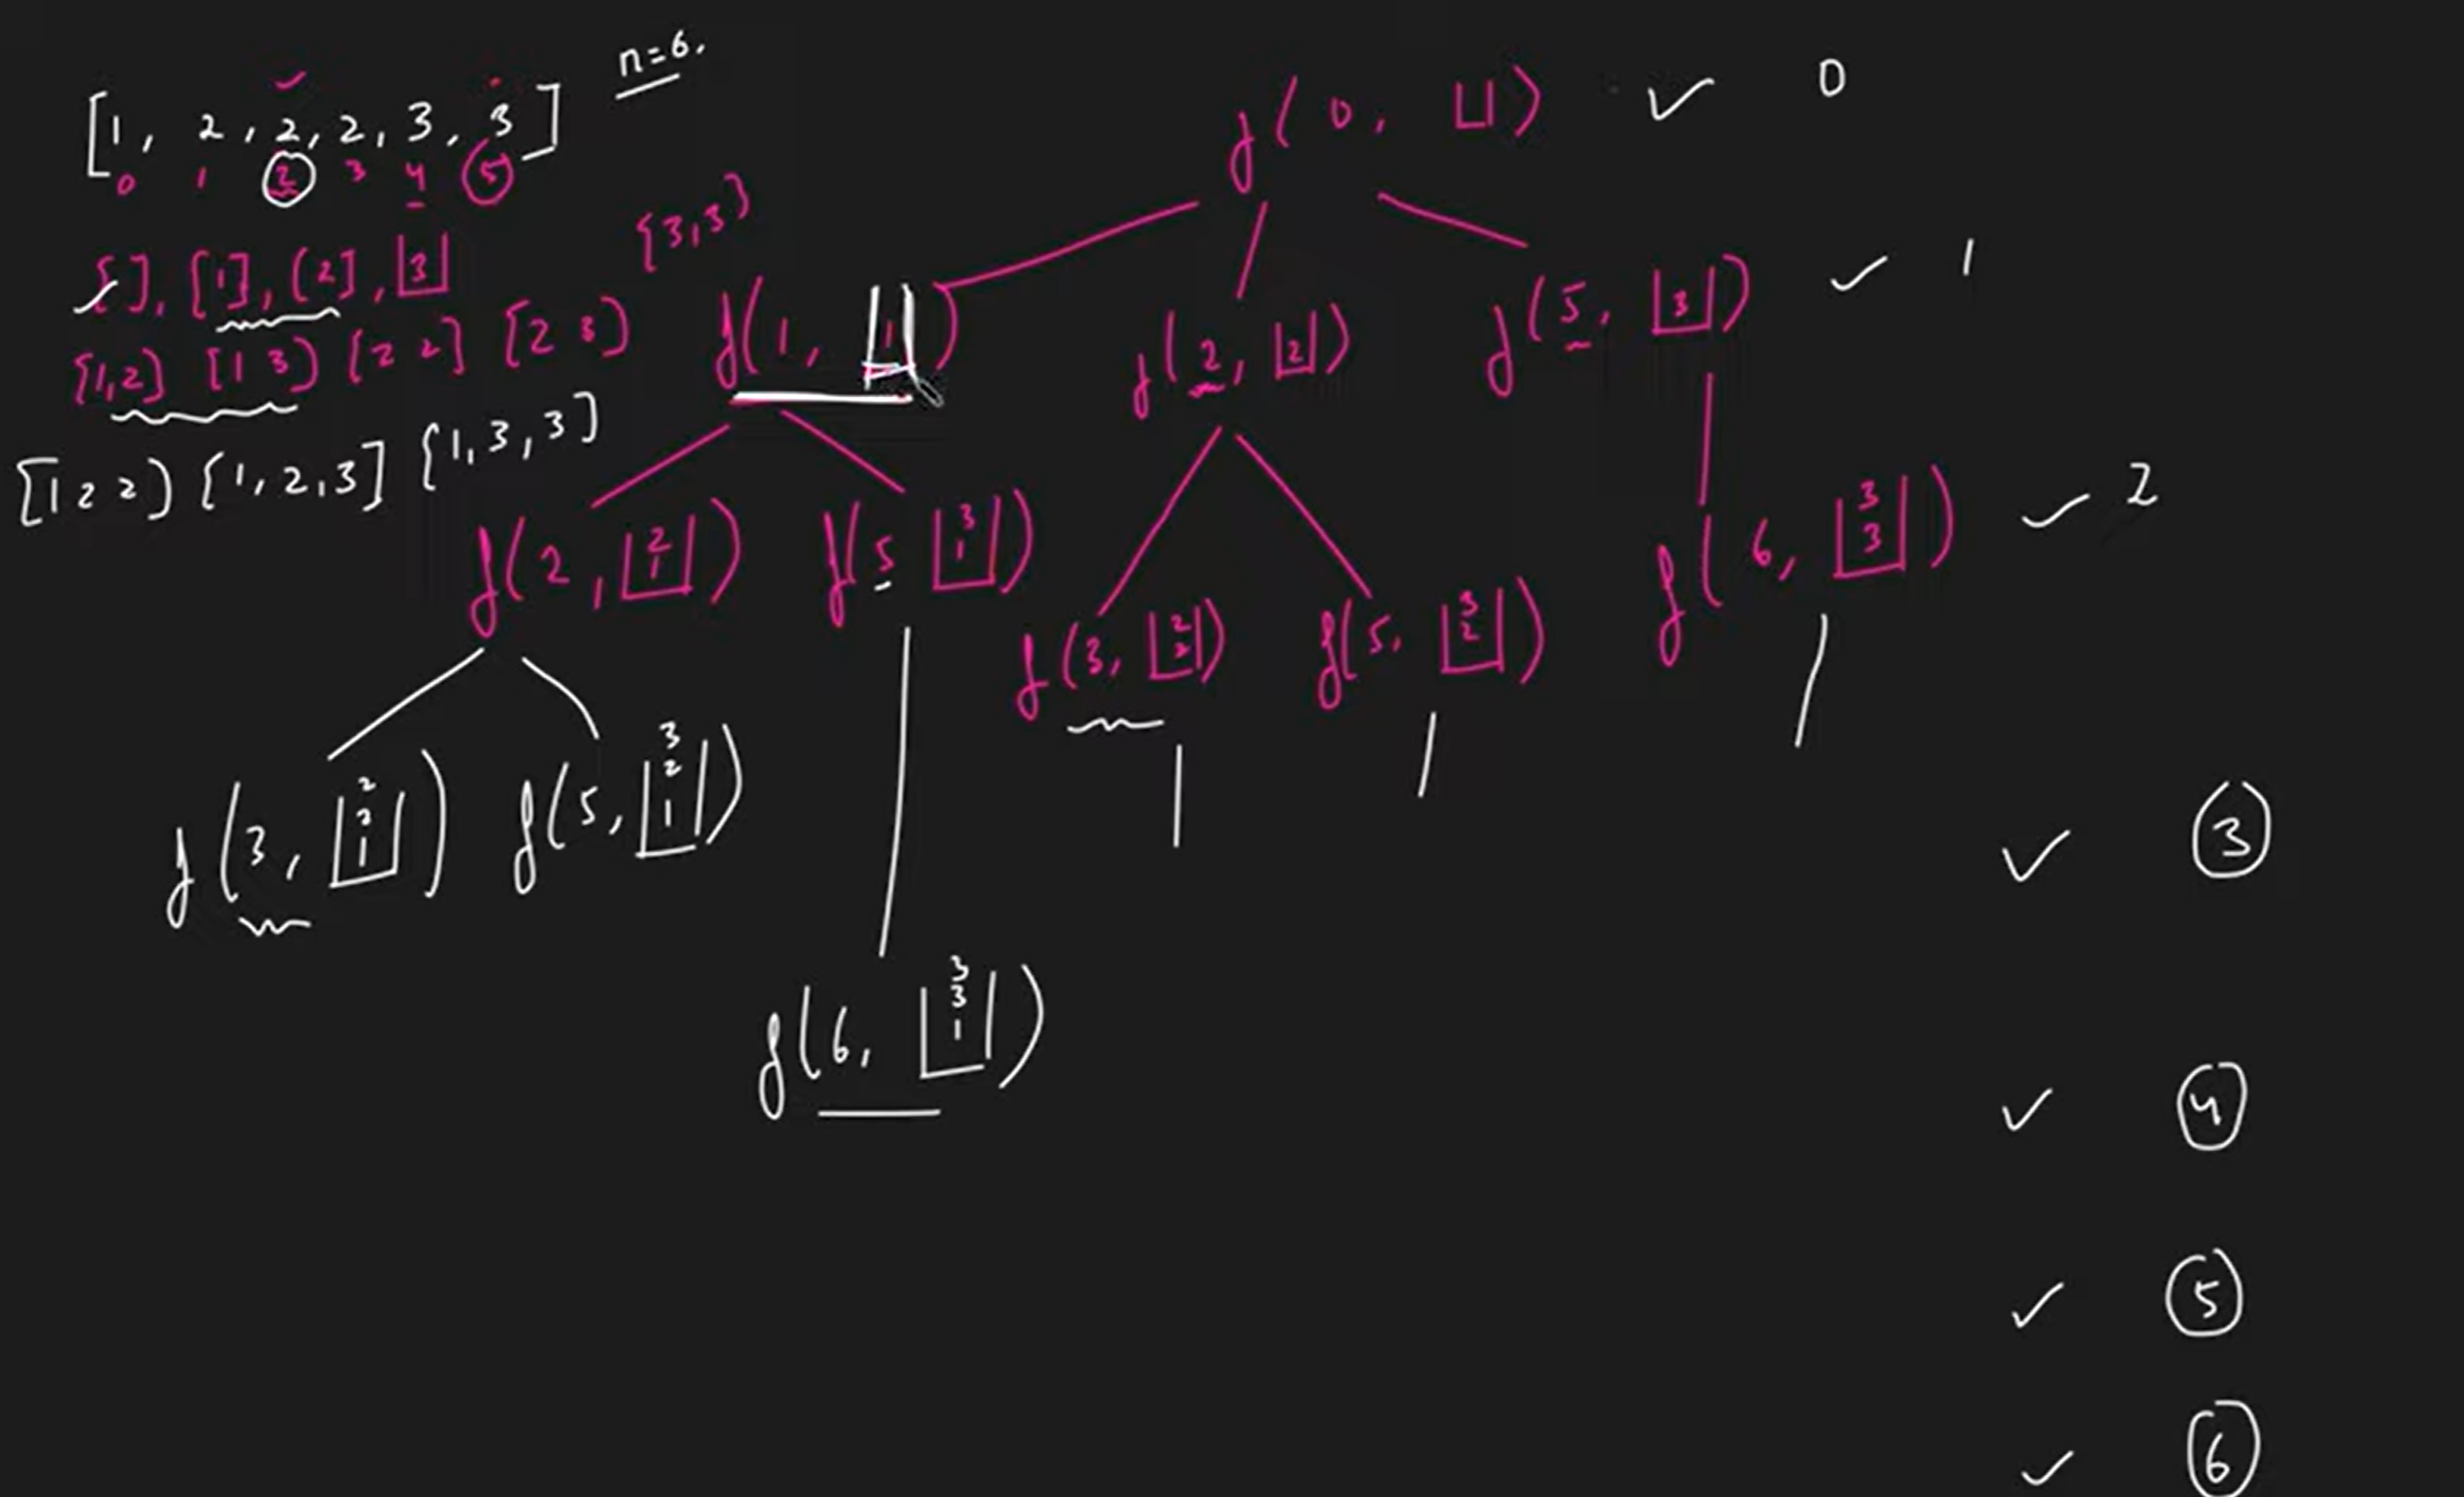 [1, 2, 2, 2, 3, 3] n=6.
0 1 2 3 4 5
[], [1], [2], [3]
{3,3}
{1,2} [1 3) [2 2] [2 3)
[1 2 2) {1,2,3] {1,3,3]
f(0, [])
0
f(1, [1])
f(2, [2])
f(5, [3])
1
f(2, [2
1])
f(5 [3
1])
f(3, [2
2])
f(5, [3
2])
f(6, [3
3])
2
f(3, [2
2
1])
f(5, [3
2
1])
3
f(6, [3
3
1])
4
5
6